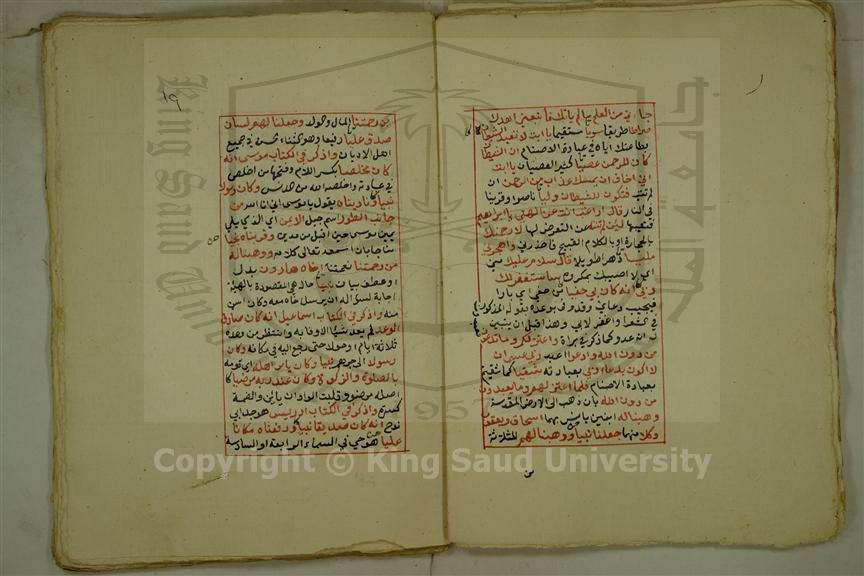 جاءني من العلم ما لم ياتك فاتبعني اهدك
صراطا طريقا سويا مستقيما يا ابت لا تعبد الشيطان
بطاعتك اياه في عبادة الاصنام ان الشيطان
كان للرحمن عصيا كثير العصيان يا ابت
اني اخاف ان يمسك عذاب من الرحمن ان
لم تتب فتكون للشيطان وليا ناصرا وقرينا
في النار قال اراغب انت عن الهتي يا ابراهيم
فتعيبها لئن لم تنته عن التعرض لها لارجمنك
بالحجارة او بالكلام القبيح فاحذرني واهجرني
مليا دهرا طويلا قال سلام عليك مني
اي لا اصيبك بمكروه ساستغفر لك
ربي انه كان بي حفيا من حفي اي بارا
فيجيب دعائي وقد وفى بوعده بقوله المذكور
في الشعرا واغفر لابي وهذا قبل ان يتبين
له انه عدو لله كما ذكر في براة واعتزلكم وما تدعون
من دون الله وادعوا اعبد ربي عسى ان
لا اكون بدعاء ربي بعبادته شقيا كما شقيتم
بعبادة الاصنام فلما اعتزلهم وما يعبدون
من دون الله بان ذهب الى الارض المقدسة
وهبنا له ابنين يانس بهما اسحاق ويعقوب
وكلا منهما جعلنا نبيا ووهبنا لهم للثلاثة
من
١٩
من رحمتنا المال والولد وجعلنا لهم لسان
صدق عليا رفيعا وهو الثناء الحسن في جميع
اهل الاديان واذكر في الكتاب موسى انه
كان مخلصا بكسر اللام وفتحها من اخلص
في عبادته واخلصه الله من الدنس وكان رسولا
نبيا وناديناه بقول يا موسى اني انا الله من
جانب الطور اسم جبل الايمن اي الذي يلي
يمين موسى حين اقبل من مدين وقربناه نجيا
مناجيا بان اسمعه تعالى كلامه ووهبنا له
من رحمتنا نعمتنا اخاه هارون بدل
او عطف بيان نبيا حال هي المقصودة بالهبة
اجابة لسؤاله ان يرسل اخاه معه وكان اسن
منه واذكر في الكتاب اسماعيل انه كان صادق
الوعد لم يعد شيئا الا وفا به وانتظر من وعده
ثلاثة ايام او حولا حتى رجع اليه في مكانه وكان
رسولا الى جرهم نبيا وكان يامر اهله اي قومه
بالصلوة والزكوة وكان عند ربه مرضيا
اصله مرضوو قلبت الواوان يائين والضمة
كسرة واذكر في الكتاب ادريس هو جد ابي
نوح انه كان صديقا نبيا ورفعناه مكانا
عليا هو حي في السماء الرابعة او السادسة
King Saud University
جامعة الملك سعود
1957
Copyright © King Saud University